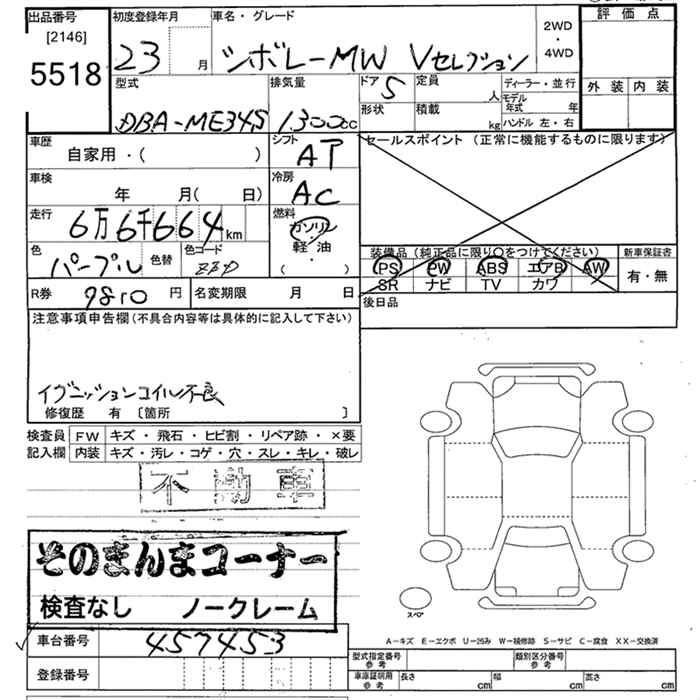 出品番号
[2146]
5518
初度登録年月
23 月
車名・グレード
シボレーMW Vセレクション
2WD
・
4WD
評価点
外装 内装
型式
DBA-ME34S
排気量
1300cc
ドア 5
定員 人
形状
積載 kg
ディーラー・並行
モデル年式 年
ハンドル 左・右
車歴
自家用・( )
シフト
AT
セールスポイント (正常に機能するものに限ります)
車検
年 月( 日)
冷房
AC
走行
6万6千664km
燃料
ガソリン
軽・油
( )
色
パープル
色替
色コード
装備品 (純正品に限り○をつけてください)
PS PW ABS エアB AW
SR ナビ TV カワ
新車保証書
有・無
R券 9810 円
名変期限 月 日
後日品
注意事項申告欄 (不具合内容等は具体的に記入して下さい)
イグニッションコイル不良
修復歴 有 〔箇所 〕
検査員 FW キズ・飛石・ヒビ割・リペア跡・×要
記入欄 内装 キズ・汚レ・コゲ・穴・スレ・キレ・破レ
不動車
そのまんまコーナー
検査なし ノークレーム
スペア
車台番号 457453
登録番号
A-キズ E-エクボ U-凹み W-補修跡 S-サビ C-腐食 XX-交換済
型式指定番号
参考
類別区分番号
参考
車庫証明用
参考
長さ cm 幅 cm 高さ cm